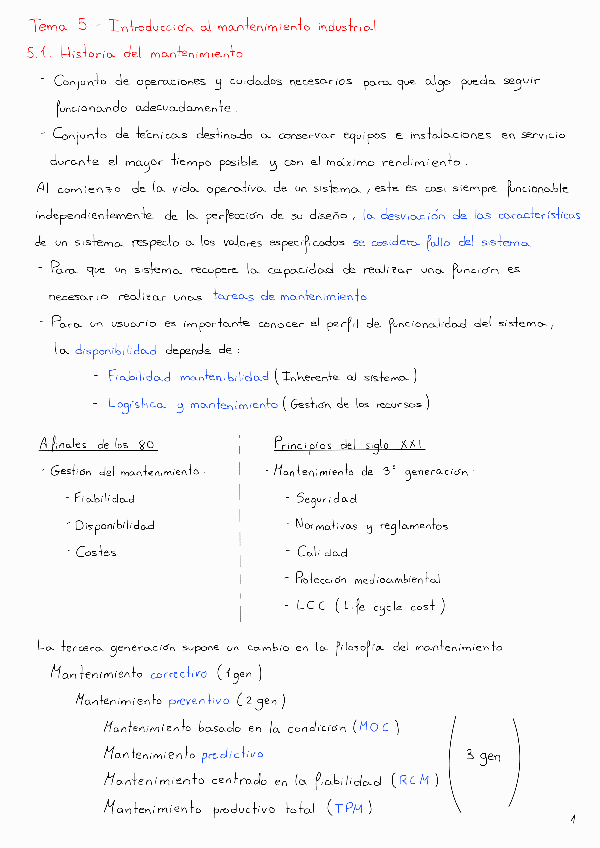 Tema 5 - Introducción al mantenimiento industrial
5.1. Historia del mantenimiento
- Conjunto de operaciones y cuidados necesarios para que algo pueda seguir
funcionando adecuadamente.
- Conjunto de técnicas destinado a conservar equipos e instalaciones en servicio
durante el mayor tiempo posible y con el máximo rendimiento.
Al comienzo de la vida operativa de un sistema, este es casi siempre funcionable
independientemente de la perfección de su diseño, la desviación de las características
de un sistema respecto a los valores especificados se cosidera fallo del sistema
- Para que un sistema recupere la capacidad de realizar una función es
necesario realizar unas tareas de mantenimiento
- Para un usuario es importante conocer el perfil de funcionalidad del sistema,
la disponibilidad depende de:
- Fiabilidad mantenibilidad (Inherente al sistema)
- Logística y mantenimiento (Gestión de los recursos)
A finales de los 80
- Gestión del mantenimiento.
- Fiabilidad
- Disponibilidad
- Costes
Principios del siglo XXI
- Mantenimiento de 3ª generación.
- Seguridad
- Normativas y reglamentos
- Calidad
- Protección medioambiental
- LCC (Life cycle cost)
La tercera generación supone un cambio en la filosofía del mantenimiento
Mantenimiento correctivo (1 gen)
Mantenimiento preventivo (2 gen)
Mantenimiento basado en la condición (MOC)
Mantenimiento predictivo
Mantenimiento centrado en la fiabilidad (RCM)
Mantenimiento productivo total (TPM)
3 gen
1